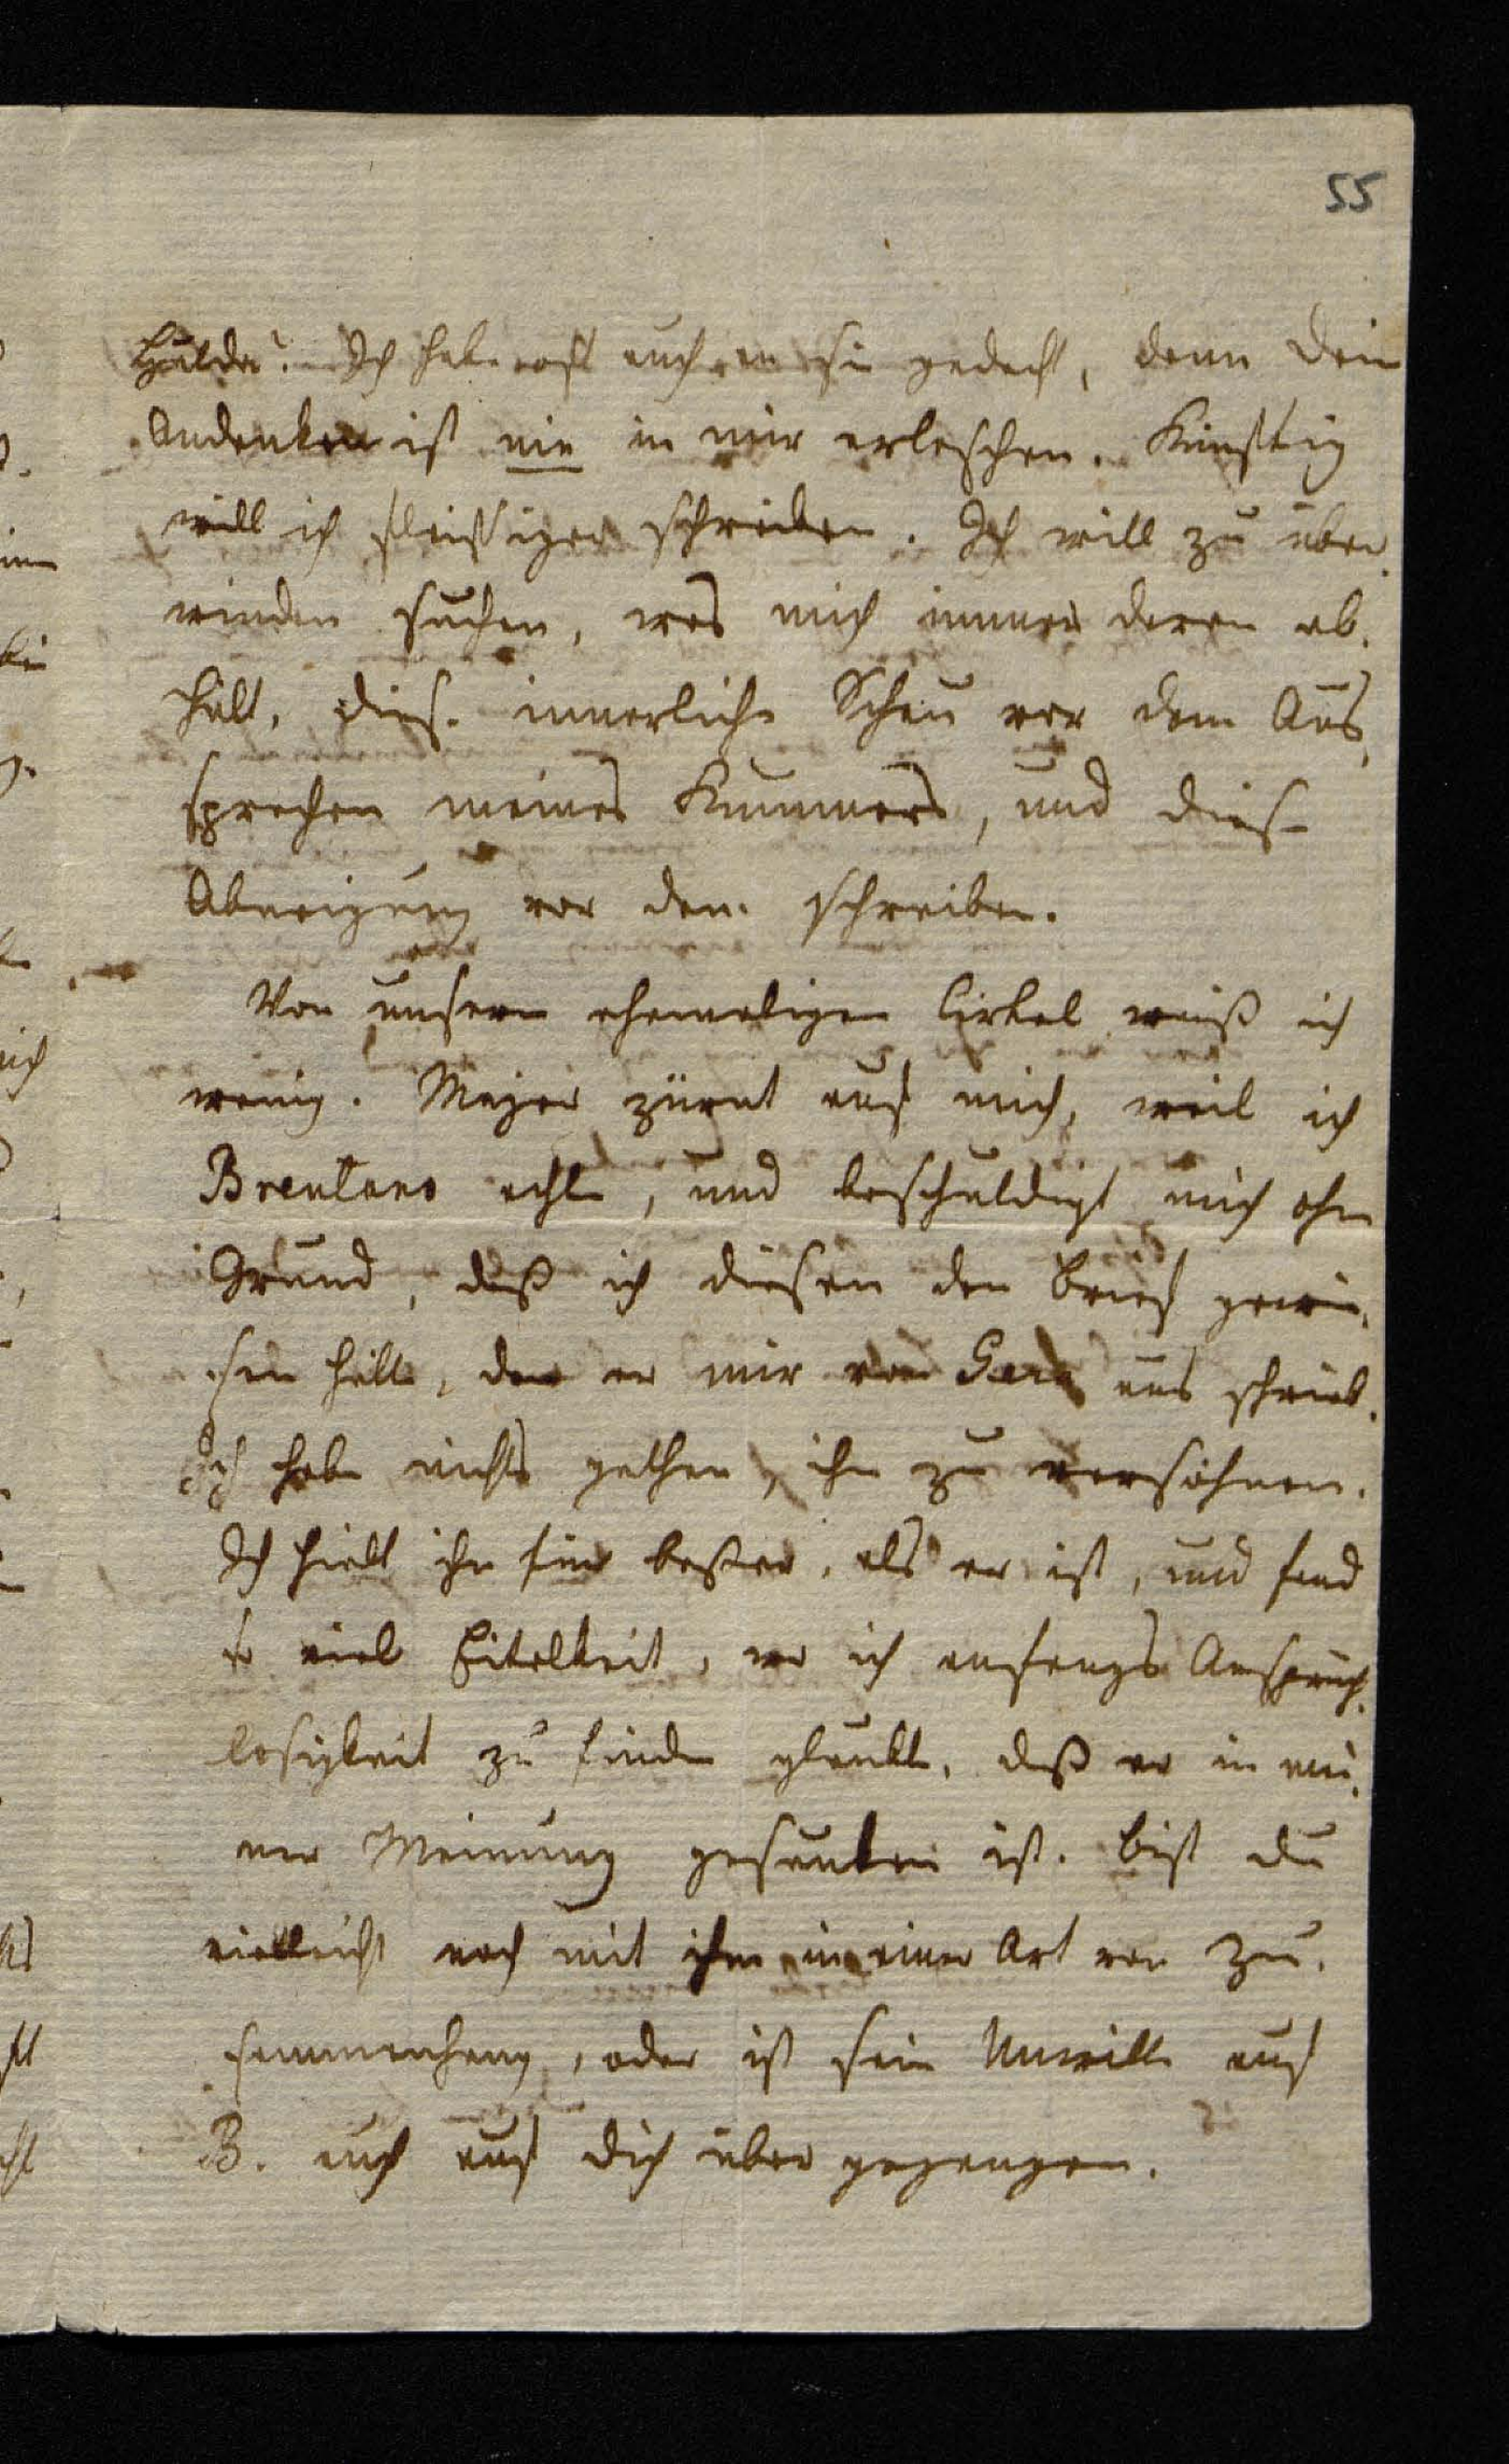 55
Hulda? Ich habe oft auch an sie gedacht, denn Dein
Andenken ist nie in mir erloschen. Künftig
will ich fleißiger schreiben. Ich will zu über-
winden suchen, was mich immer davon ab-
hält, diese innerliche Scheu vor dem Aus-
sprechen meines Kummers, und diese
Abneigung vor dem schreiben.
Von unserm ehemaligen Cirkel weiß ich
wenig. Majer zürnt auf mich, weil ich
Brentano achte, und beschuldigt mich ohne
Grund, daß ich diesem den Brief gewie-
sen hätte, den er mir von Gera aus schrieb.
Ich habe nichts gethan, ihn zu versöhnen.
Ich hielt ihn für besser, als er ist, und fand
so viel Eitelkeit, wo ich anfangs Anspruch-
losigkeit zu finden glaubte, daß er in mei-
ner Meinung gesunken ist. Bist du
vielleicht noch mit ihm in einer Art von Zu-
sammenhang, oder ist sein Unwille auf
B. auch auf dich über gegangen.